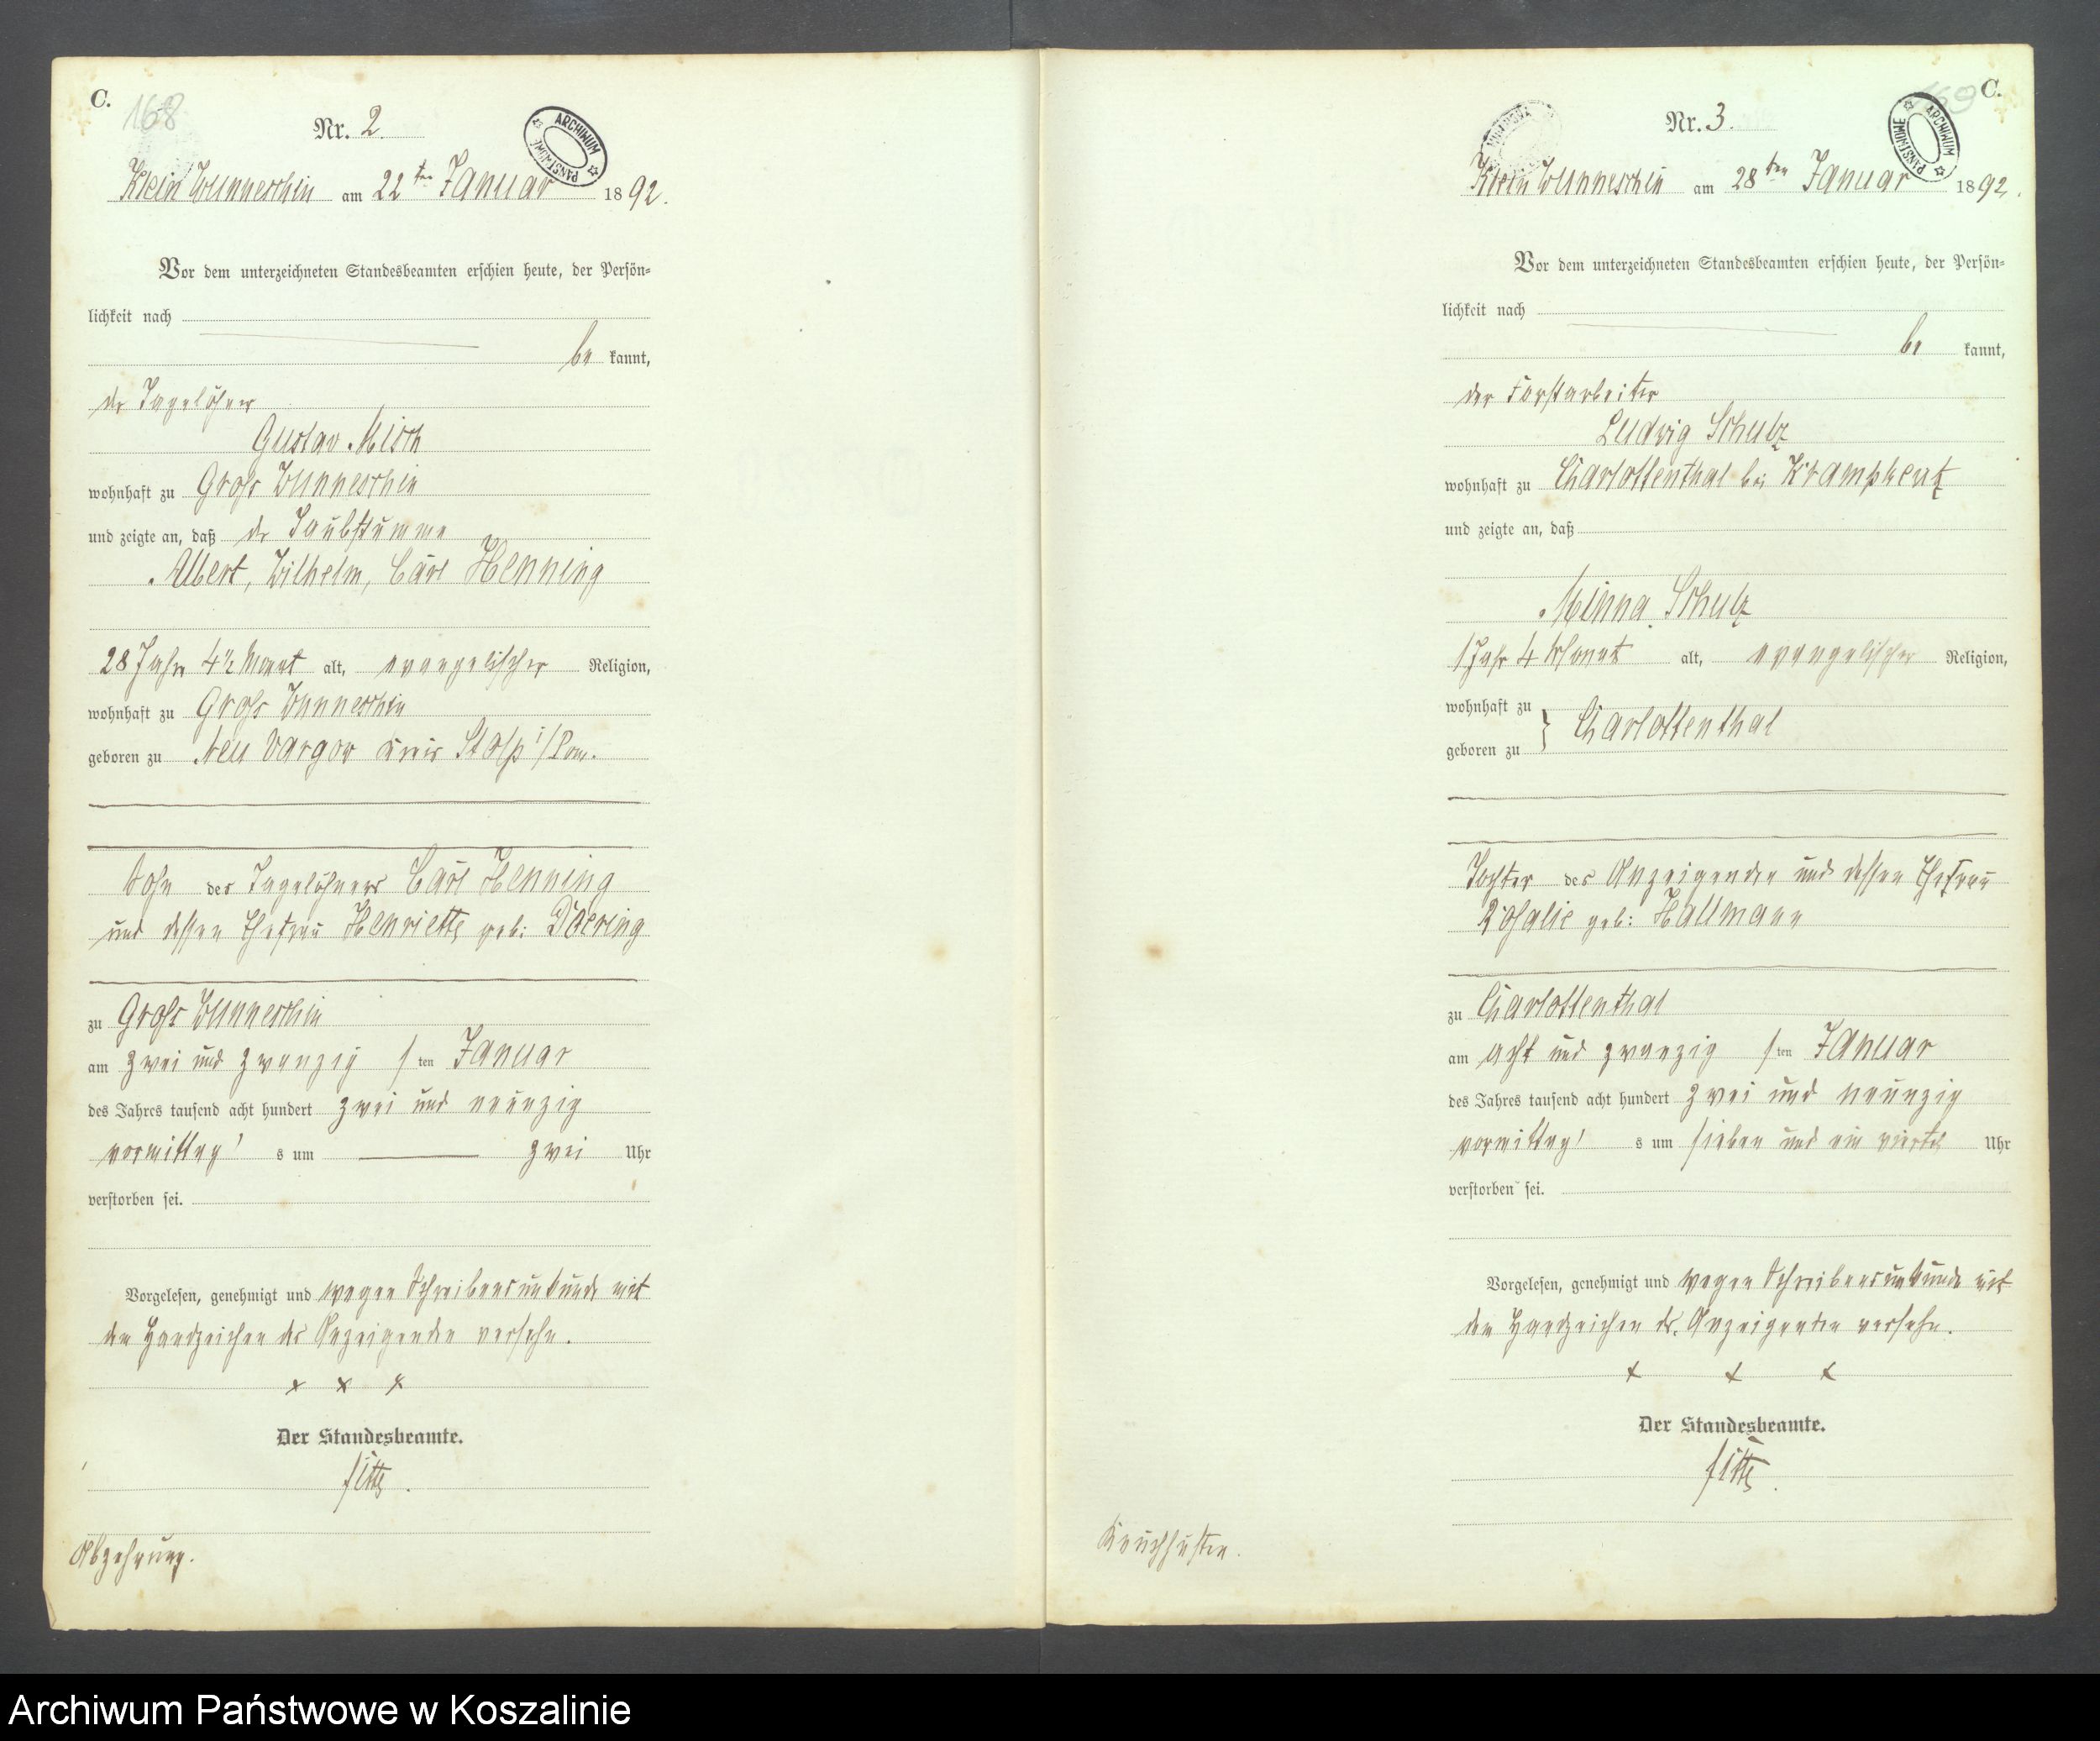 C.
168
Nr. 2.
ARCHIWUM PAŃSTWOWE
Klein Wunneschin am 22ten Januar 1892.
Vor dem unterzeichneten Standesbeamten erschien heute, der Persön-
lichkeit nach
be kannt,
der Tagelöhner
Gustav Misch
wohnhaft zu Gross Wunneschin
und zeigte an, daß der Taubstumme
Albert, Wilhelm, Carl Henning
28 Jahre 4½ Monat alt, evangelischer Religion,
wohnhaft zu Gross Wunneschin
geboren zu Neu Vargow Kreis Stolp i/Pom.
Sohn des Tagelöhners Carl Henning
und dessen Ehefrau Henriette geb: Doering
zu Gross Wunneschin
am zwei und zwanzig s ten Januar
des Jahres tausend acht hundert zwei und neunzig
vormittag s um zwei Uhr
verstorben sei.
Vorgelesen, genehmigt und wegen Schreibensunkunde mit
dem Handzeichen des Anzeigenden versehn.
x x x
Der Standesbeamte.
Abzehrung.
C.
169
Nr. 3.
ARCHIWUM PAŃSTWOWE
Klein Wunneschin am 28ten Januar 1892.
Vor dem unterzeichneten Standesbeamten erschien heute, der Persön-
lichkeit nach
be kannt,
der Forstarbeiter
Ludwig Schulz
wohnhaft zu Charlottenthal bei Krampkewitz
und zeigte an, daß
Minna Schulz
1 Jahr 4 Monat alt, evangelischer Religion,
wohnhaft zu
geboren zu } Charlottenthal
Tochter des Anzeigenden und dessen Ehefrau
Rosalie geb: Hallmann
zu Charlottenthal
am acht und zwanzig s ten Januar
des Jahres tausend acht hundert zwei und neunzig
vormittag s um sieben und ein viertel Uhr
verstorben sei.
Vorgelesen, genehmigt und wegen Schreibensunkunde mit
dem Handzeichen des Anzeigenden versehn.
x x x
Der Standesbeamte.
Keuchhusten.
Archiwum Państwowe w Koszalinie